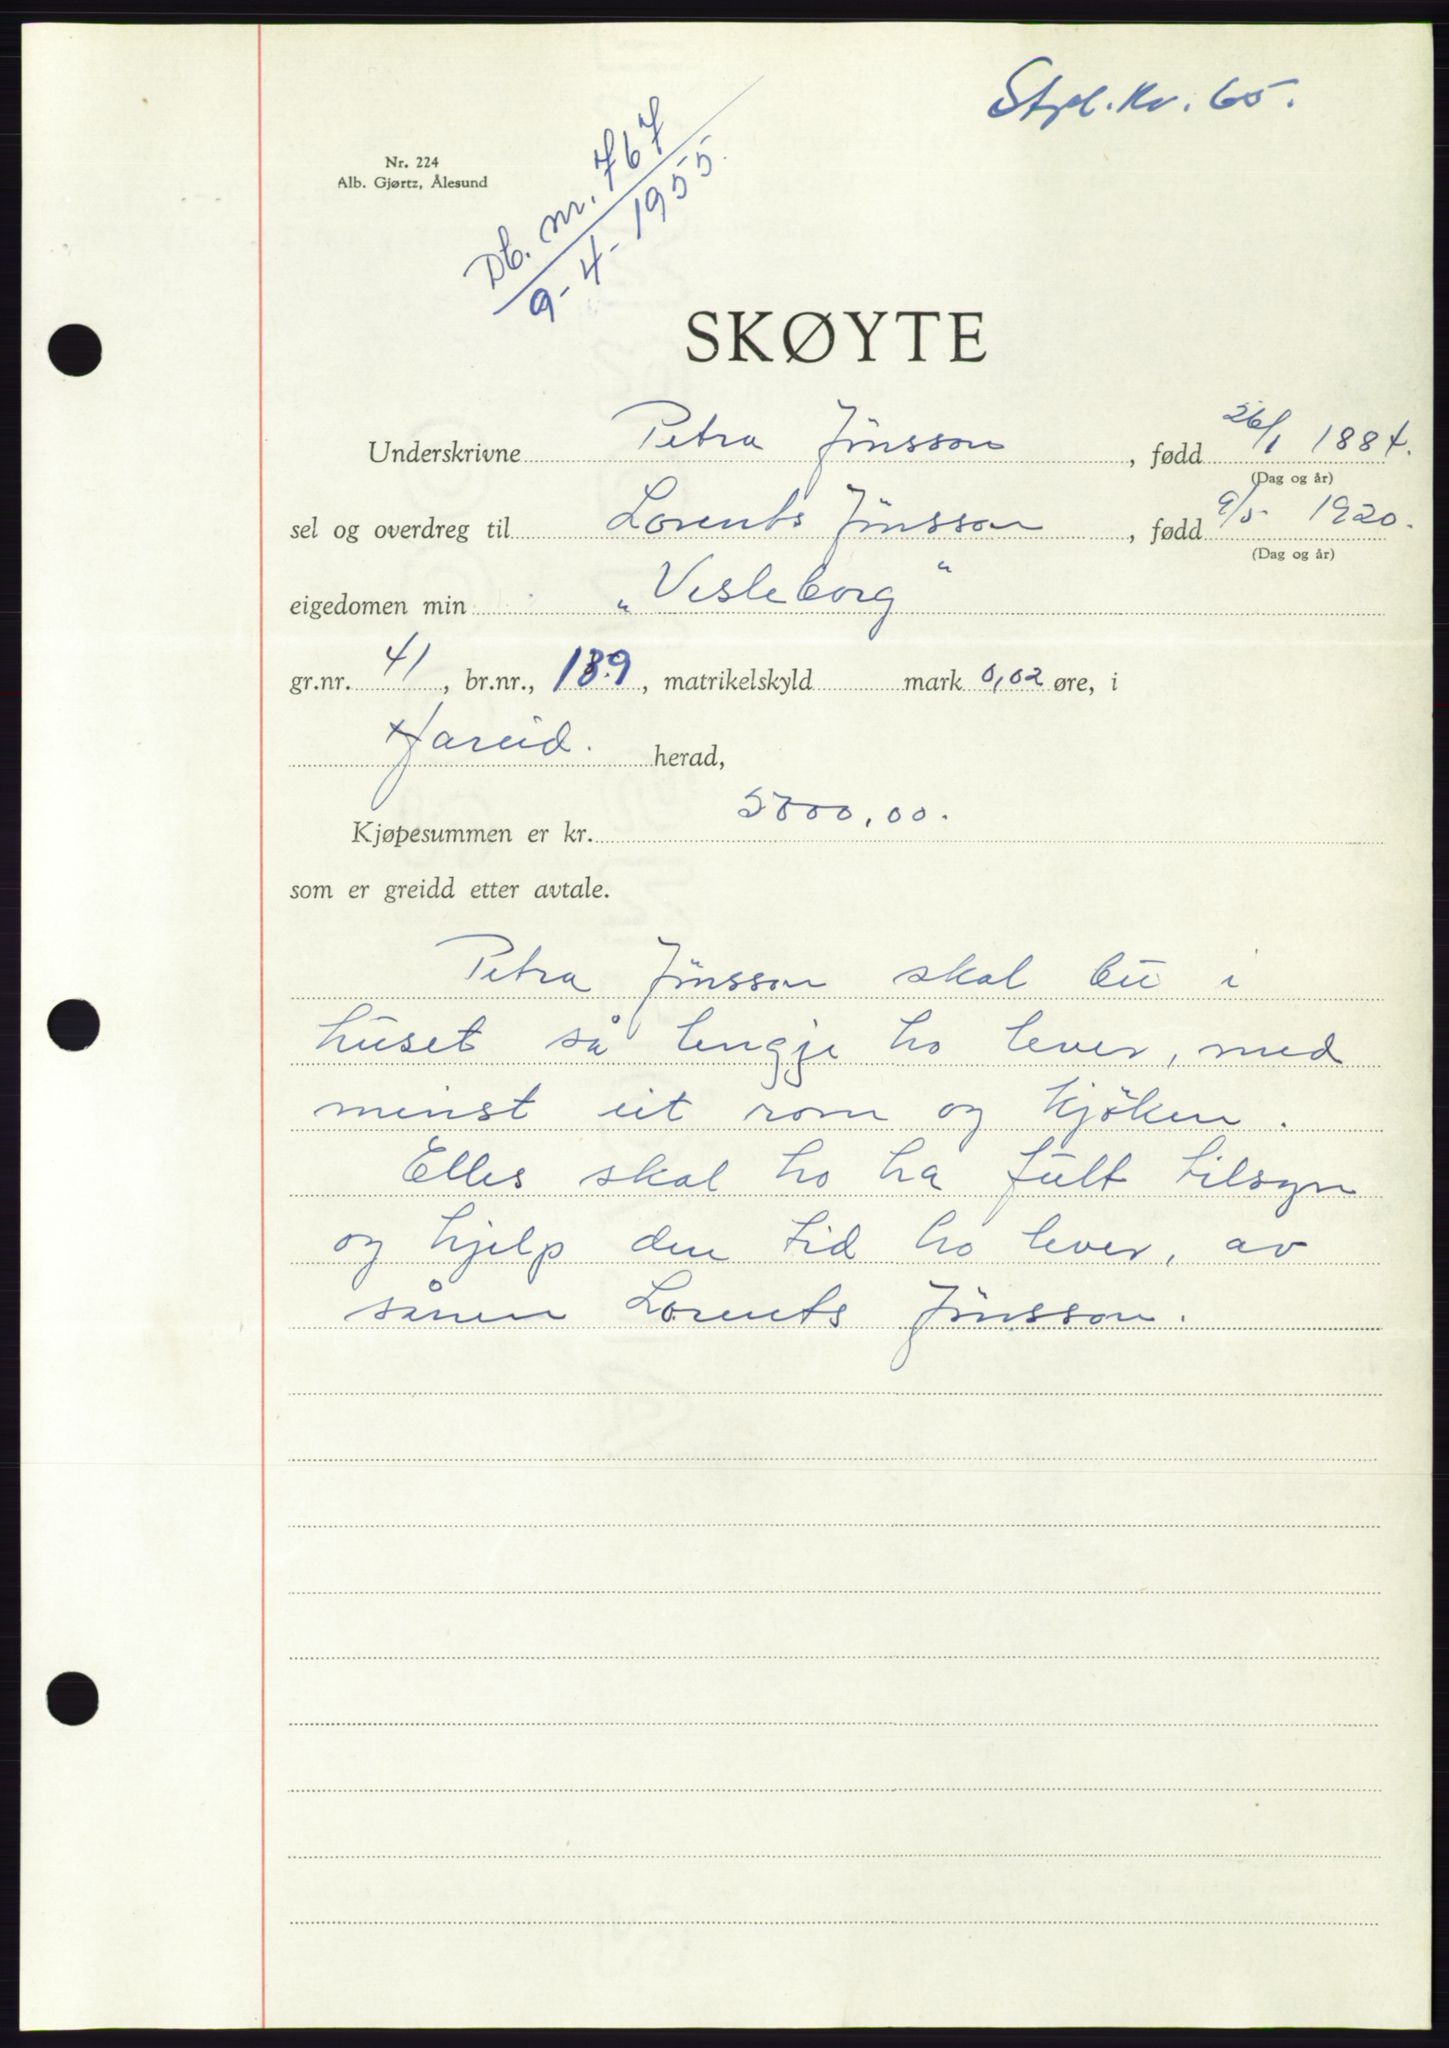 Stpl. kr. 65.
Nr. 224
Alb. Gjørtz, Ålesund
Db. nr. 767
9-4-1955.
SKØYTE
Underskrivne Petra Jönsson, fødd 26/1 1884.
(Dag og år)
sel og overdreg til Lorents Jönsson, fødd 9/5 1920.
(Dag og år)
eigedomen min „Vesleborg"
gr.nr. 41, br.nr., 189, matrikelskyld mark 0,02 øre, i
Hareid. herad,
Kjøpesummen er kr. 5000,00.
som er greidd etter avtale.
Petra Jönsson skal bu i
huset så lengje ho lever, med
minst eit rom og kjöken.
Elles skal ho ha fult tilsyn
og hjelp den tid ho lever, av
sånen Lorents Jönsson.